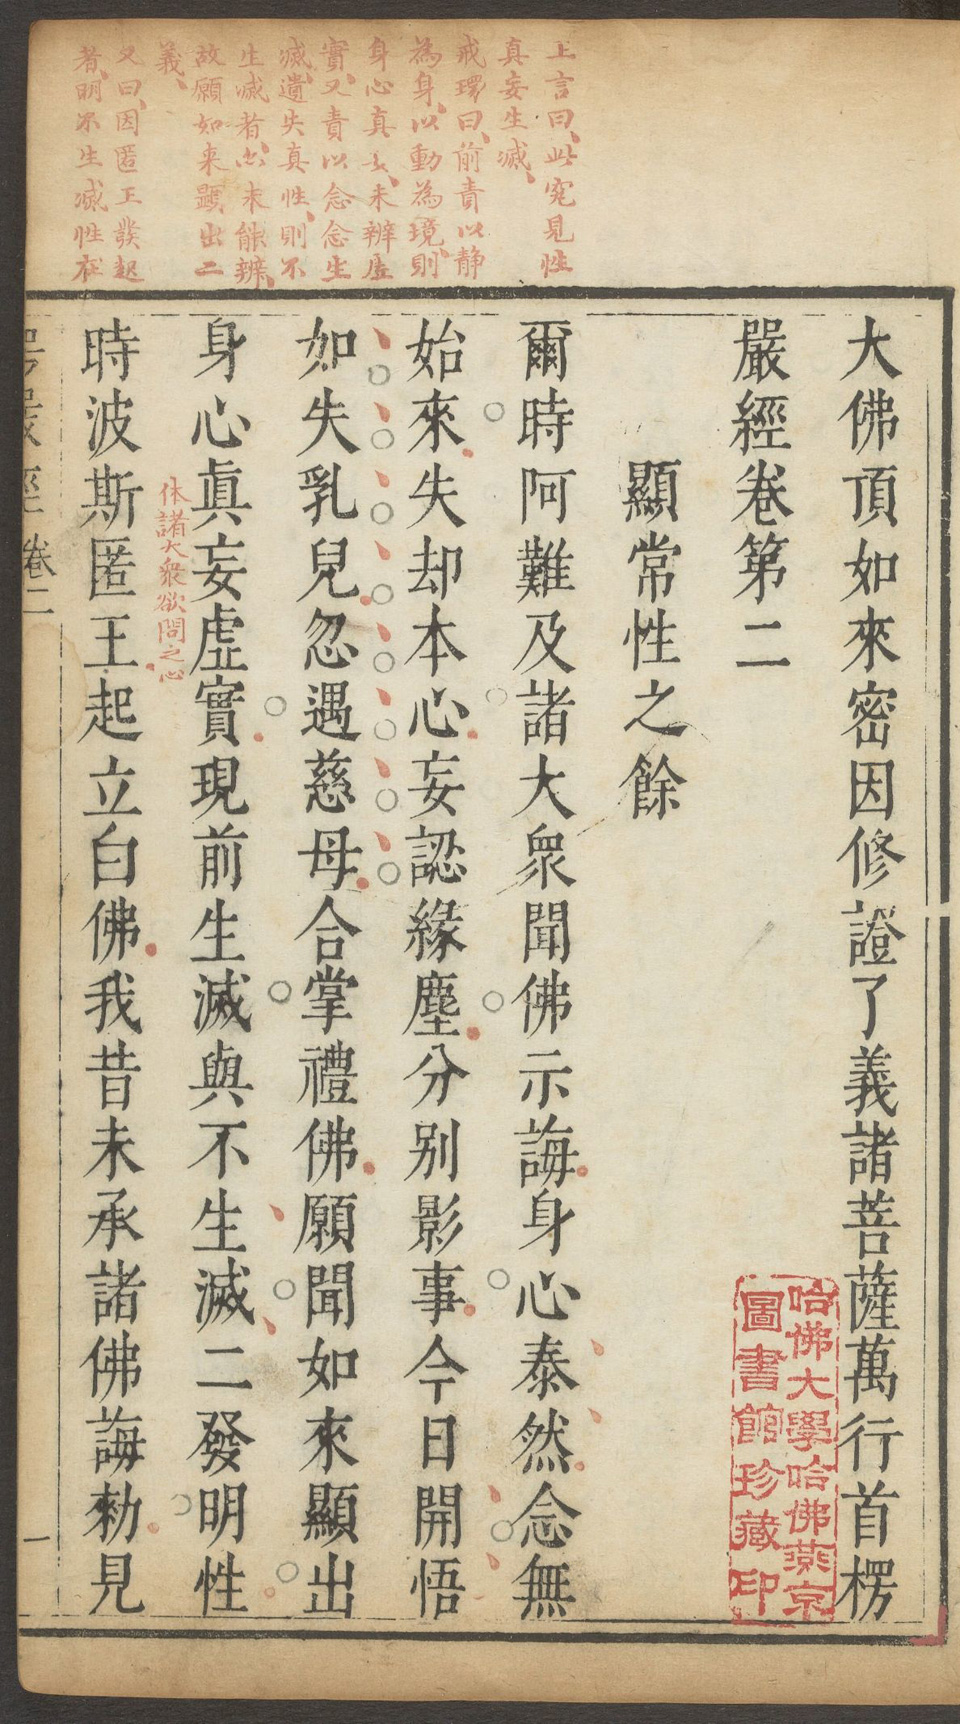 上言曰此究見性
真妄生滅
戒環曰前責以静
為身以動為境則
身心真妄未辨虛
實又責以念念生
滅遺失真性則不
生滅者亦未能辨
故願如来顯出二
義
又曰因匿王發起
者明不生滅性在
大佛頂如來密因修證了義諸菩薩萬行首楞
嚴經卷第二
顯常性之餘
爾時阿難及諸大眾聞佛示誨身心泰然念無
始來失却本心妄認緣塵分別影事今日開悟
如失乳兒忽遇慈母合掌禮佛願聞如來顯出
身心眞妄虛實現前生滅與不生滅二發明性
佅諸大衆欲問之心
時波斯匿王起立白佛我昔未承諸佛誨勑見
卷二
一
哈佛大學哈佛燕京
圖書館珍藏印